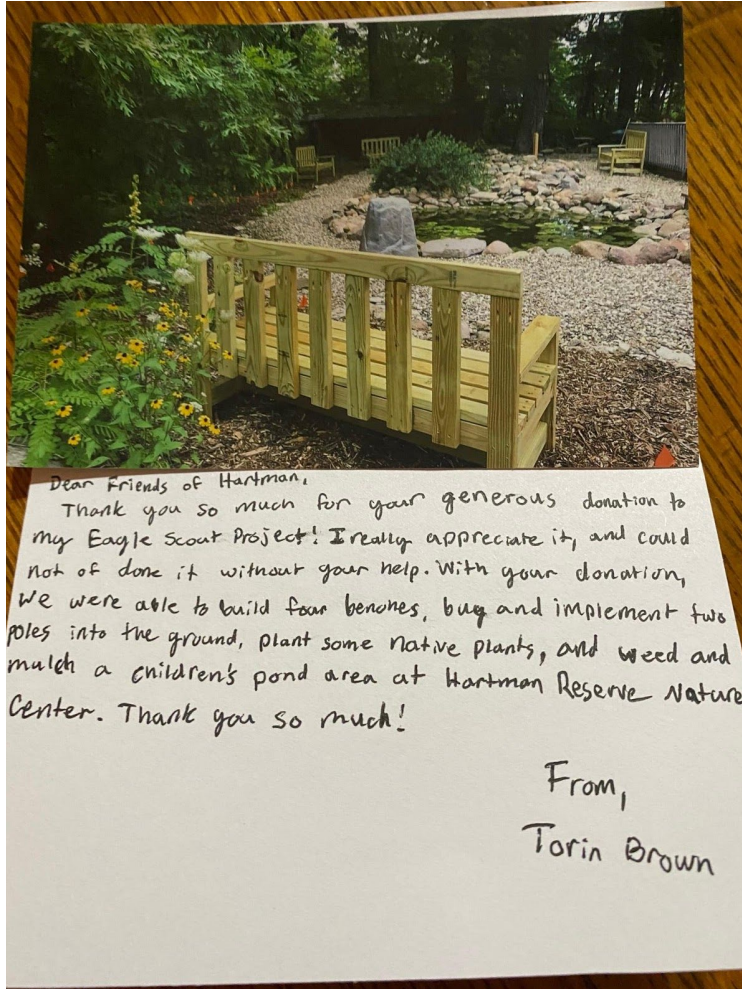 Dear Friends of Hartman,
Thank you so much for your generous donation to
my Eagle Scout Project! I really appreciate it, and could
not of done it without your help. With your donation,
we were able to build four benches, buy and implement two
poles into the ground, plant some native plants, and weed and
mulch a children's pond area at Hartman Reserve Nature
Center. Thank you so much!
From,
Torin Brown